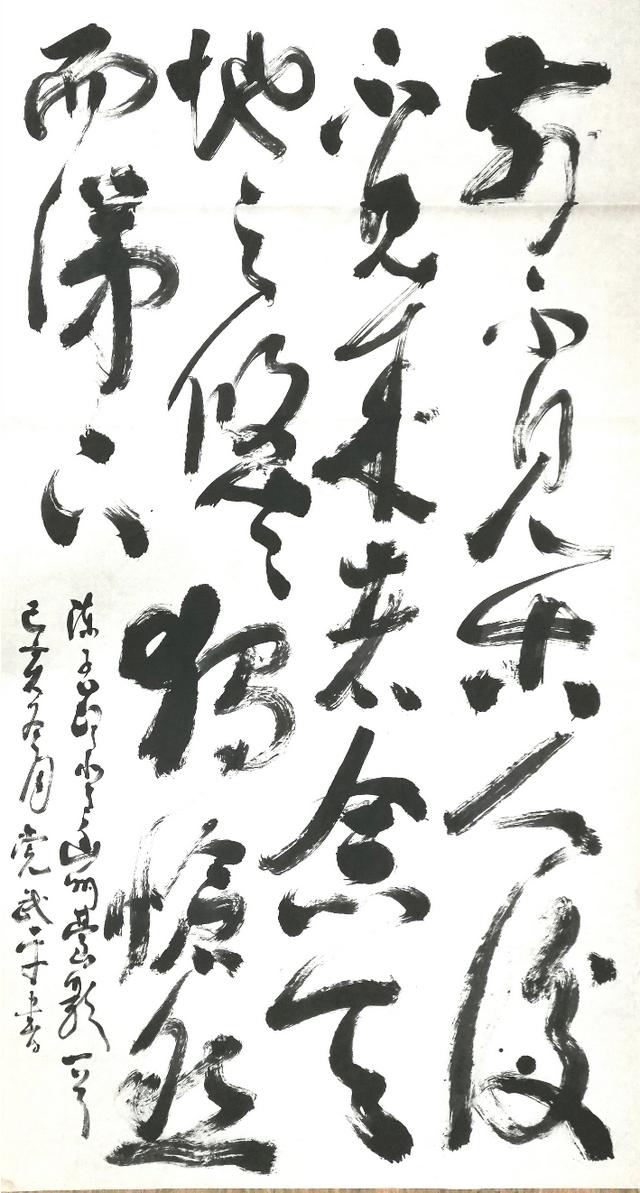 前不見古人後
不見來者念天
地之悠悠獨愴然
而涕下
陳子昂登幽州臺歌一首
己亥冬月党武平書